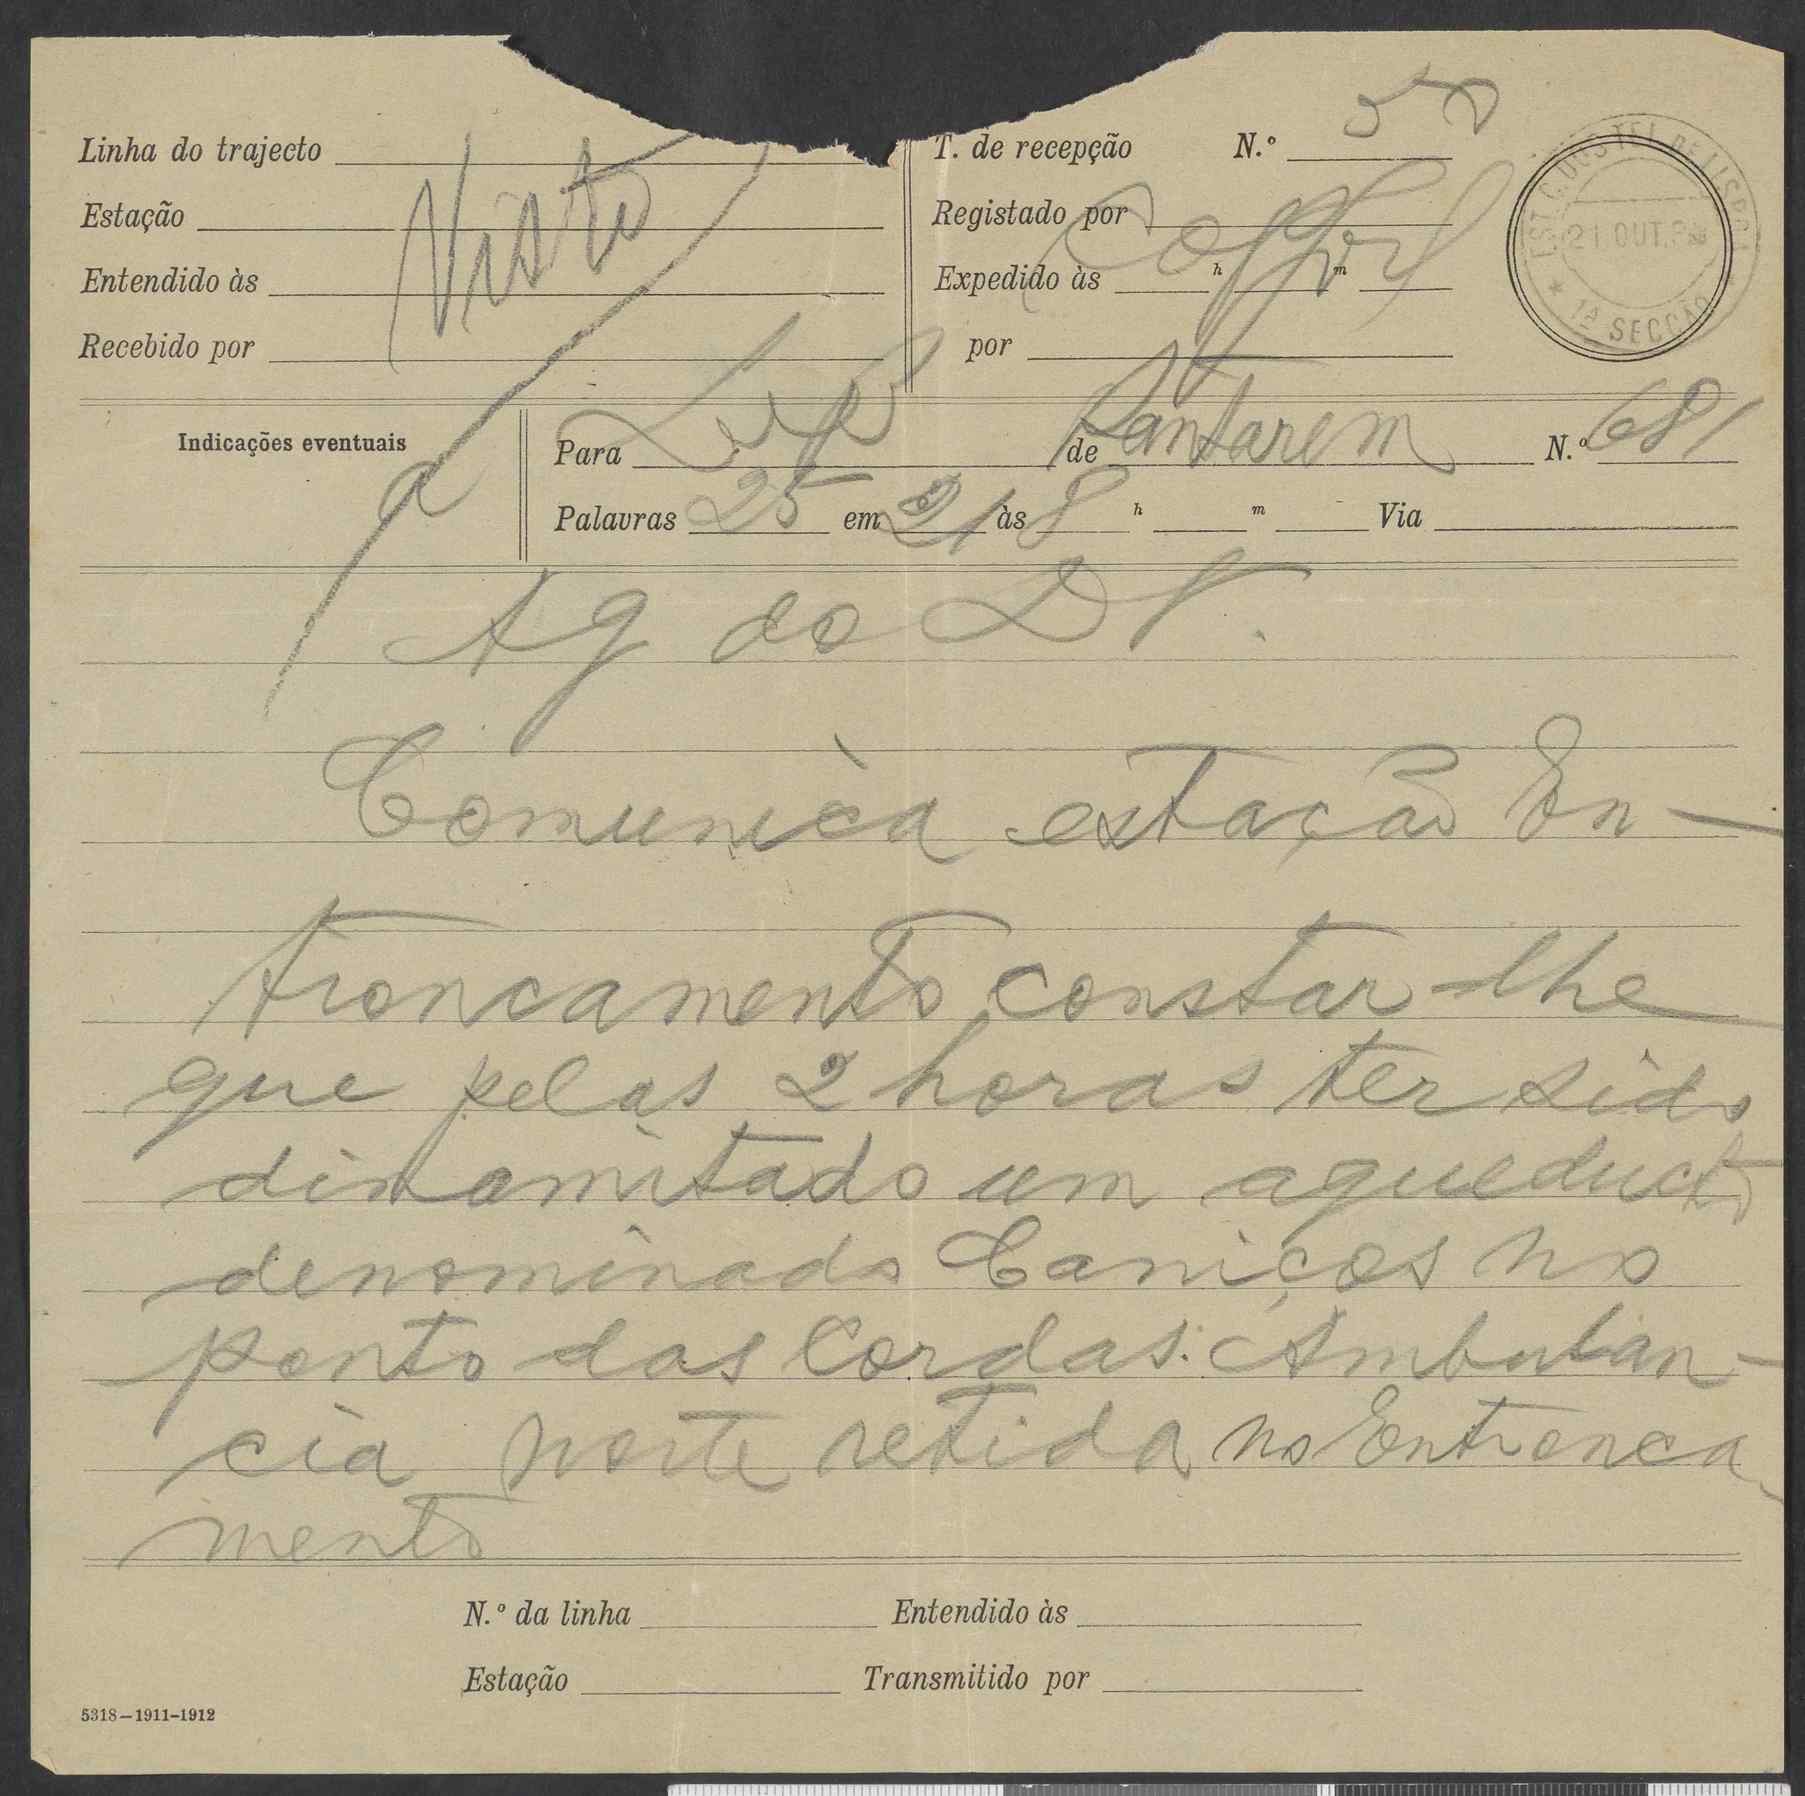 Linha do trajecto
Estação
Entendido às
Recebido por
Visto
T. de recepção N.º 58
Registado por
Expedido às h m
por
EST. C. DOS TEL. DE LISBOA
21 OUT.
1ª SECÇÃO
Indicações eventuais
Para Lx de Santarem N.º 681
Palavras 25 em 21 às 8 h m Via
Ag do
Comunica estação En-
troncamento constar-lhe
que pelas 2 horas ter sido
dinamitado um aqueducto
denominado Caniços no
ponto das Cordas. Ambulan-
cia norte retida no Entronca
mento
N.º da linha Entendido às
Estação Transmitido por
5318-1911-1912